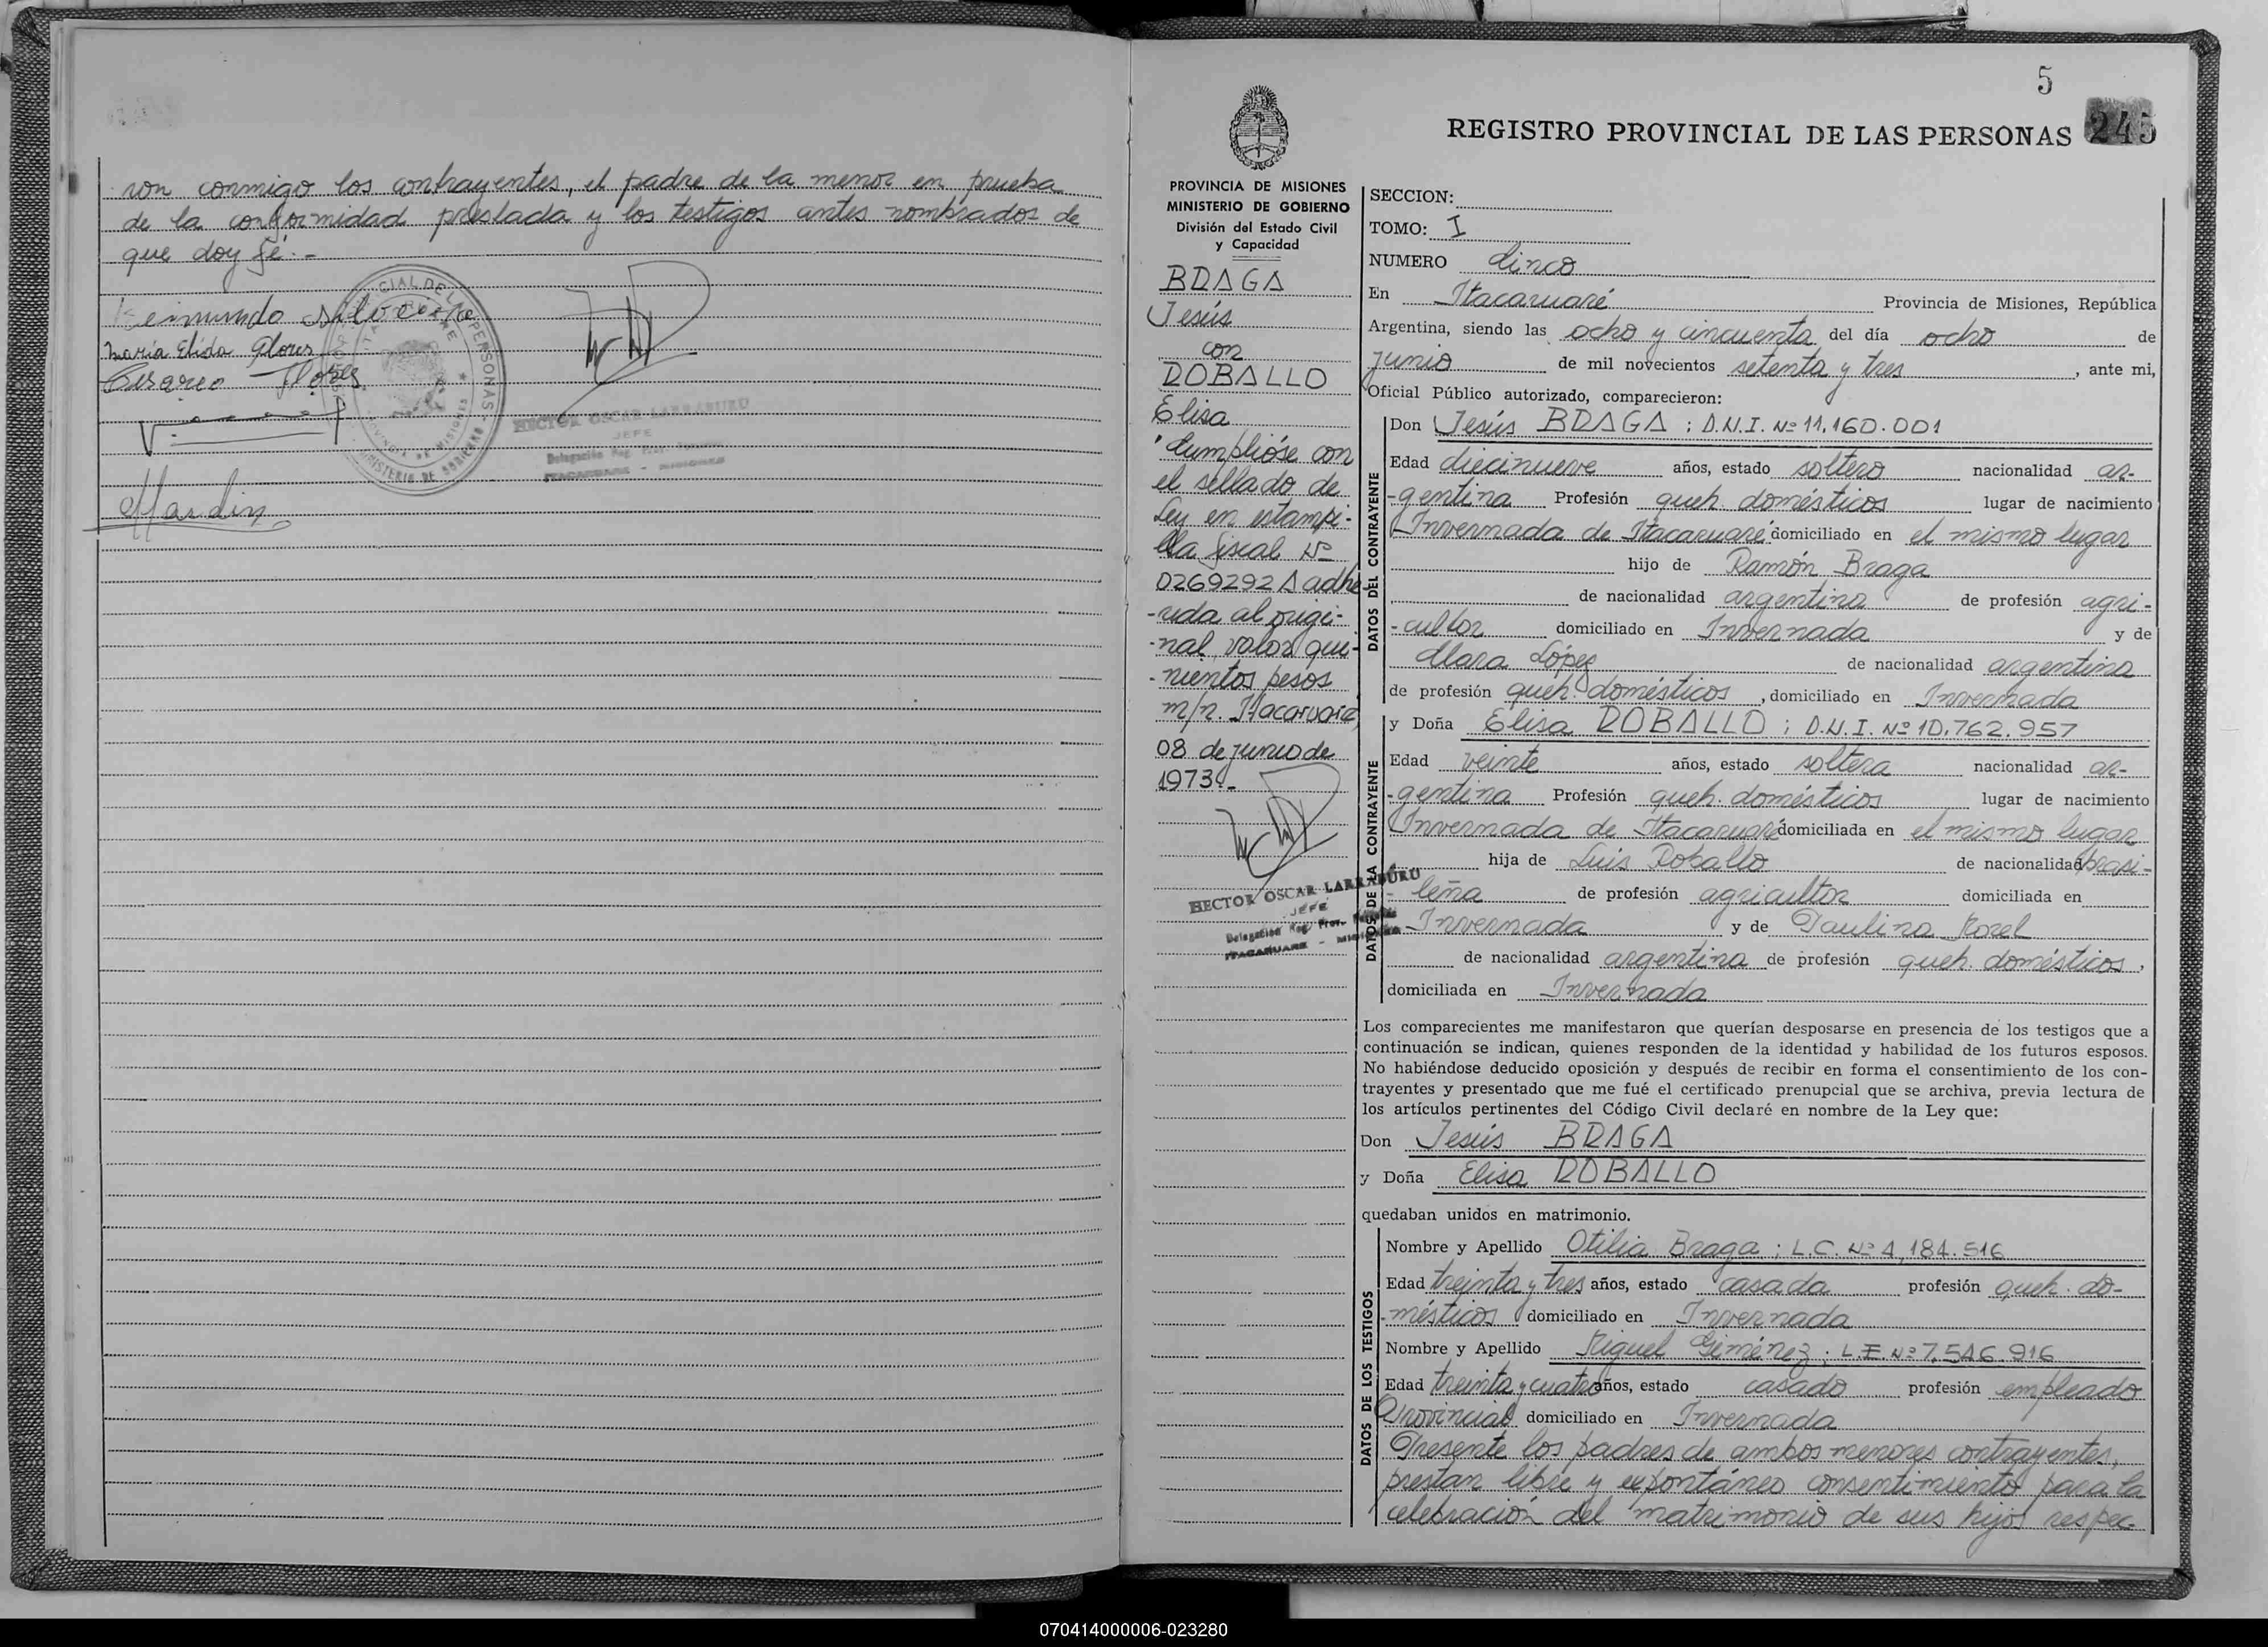 ron conmigo los contrayentes, el padre de la menor en prueba
de la conformidad prestada y los testigos antes nombrados de
que doy fé.-
Reimundo Silveira
María Elida Flores
Cesareo Flores
HECTOR OSCAR LARRABURU
JEFE
Delegación Reg. Prov.
ITACARUARE - MISIONES
5
245
REGISTRO PROVINCIAL DE LAS PERSONAS
PROVINCIA DE MISIONES
MINISTERIO DE GOBIERNO
División del Estado Civil
y Capacidad
BRAGA
Jesús
con
ROBALLO
Elisa
"Cumplióse con
el sellado de
Ley en estampi-
lla fiscal Nº
0269292 A adhe-
-rida al origi-
-nal, valor qui-
-nientos pesos
m/n. Itacaruaré
08 de junio de
1973.-
HECTOR OSCAR LARRABURU
JEFE
Delegación Reg. Prov.
ITACARUARE - MISIONES
SECCION:
TOMO: I
NUMERO Cinco
En Itacaruaré Provincia de Misiones, República
Argentina, siendo las ocho y cincuenta del día ocho de
junio de mil novecientos setenta y tres, ante mi,
Oficial Público autorizado, comparecieron:
DATOS DEL CONTRAYENTE
Don Jesús BRAGA; D.N.I. Nº 11.160.001
Edad diecinueve años, estado soltero nacionalidad ar-
-gentina Profesión queh. domésticos lugar de nacimiento
Invernada de Itacaruaré domiciliado en el mismo lugar
hijo de Ramón Braga
de nacionalidad argentina de profesión agri-
-cultor domiciliado en Invernada y de
Clara López de nacionalidad argentina
de profesión queh. domésticos, domiciliado en Invernada
DATOS DE LA CONTRAYENTE
y Doña Elisa ROBALLO; D.N.I. Nº 10.762.957
Edad veinte años, estado soltera nacionalidad ar-
-gentina Profesión queh. domésticos lugar de nacimiento
Invernada de Itacaruaré domiciliada en el mismo lugar
hija de Luis Roballo de nacionalidad brasi-
- leña de profesión agricultor domiciliada en
Invernada y de Paulina Korel
de nacionalidad argentina de profesión queh. domésticos,
domiciliada en Invernada
Los comparecientes me manifestaron que querían desposarse en presencia de los testigos que a
continuación se indican, quienes responden de la identidad y habilidad de los futuros esposos.
No habiéndose deducido oposición y después de recibir en forma el consentimiento de los con-
trayentes y presentado que me fué el certificado prenupcial que se archiva, previa lectura de
los artículos pertinentes del Código Civil declaré en nombre de la Ley que:
Don Jesús BRAGA
y Doña Elisa ROBALLO
quedaban unidos en matrimonio.
DATOS DE LOS TESTIGOS
Nombre y Apellido Otilia Braga; L.C. Nº 4,184.516
Edad treinta y tres años, estado casada profesión queh. do-
-mésticos domiciliado en Invernada
Nombre y Apellido Miguel Giménez; L.E. Nº 7.546.916
Edad treinta y cuatro años, estado casado profesión empleado
Provincial domiciliado en Invernada
Presente los padres de ambos menores contrayentes,
prestan libre y expontáneo consentimiento para la
celebración del matrimonio de sus hijos respec-
070414000006-023280